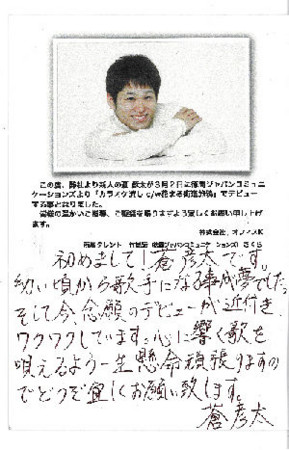 この度、弊社より新人の蒼 彦太が3月2日に徳間ジャパンコミュニ
ケーションズより「カラスケ流し c/w花まる街道旅鴉」でデビュー
する事となりました。
皆様の温かいご指導、ご声援を賜りますよう宜しくお願い申し上げ
ます。
株式会社、オフィスK
所属タレント 徳間ジャパンコミュニケーションズ さくら
初めまして!蒼彦太です。
幼い頃から歌手になる事が夢でした
そして今念願のデビューが近付き
ワクワクしています。心に響く歌を
唄えるよう一生懸命頑張りますの
でどうぞ宜しくお願い致します。
蒼彦太